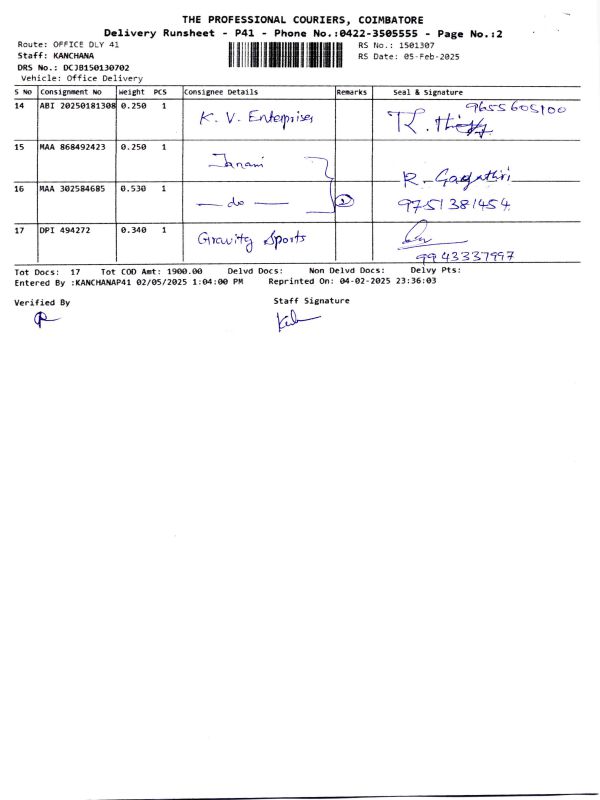 THE PROFESSIONAL COURIERS, COIMBATORE
Delivery Runsheet - P41 - Phone No.:0422-3505555 - Page No.:2
Route: OFFICE DLY 41
RS No.: 1501307
Staff: KANCHANA
RS Date: 05-Feb-2025
DRS No.: DCJB150130702
Vehicle: Office Delivery
S No Consignment No Weight PCS Consignee Details Remarks Seal & Signature
14 ABI 20250181308 0.250 1 K. V. Enterprises 9655605100
15 MAA 868492423 0.250 1 Janani
R. Gayathri
16 MAA 302584685 0.530 1 — do — 2 9751381454
17 DPI 494272 0.340 1 Gravity Sports
9943337997
Tot Docs: 17 Tot COD Amt: 1900.00 Delvd Docs: Non Delvd Docs: Delvy Pts:
Entered By :KANCHANAP41 02/05/2025 1:04:00 PM Reprinted On: 04-02-2025 23:36:03
Verified By Staff Signature